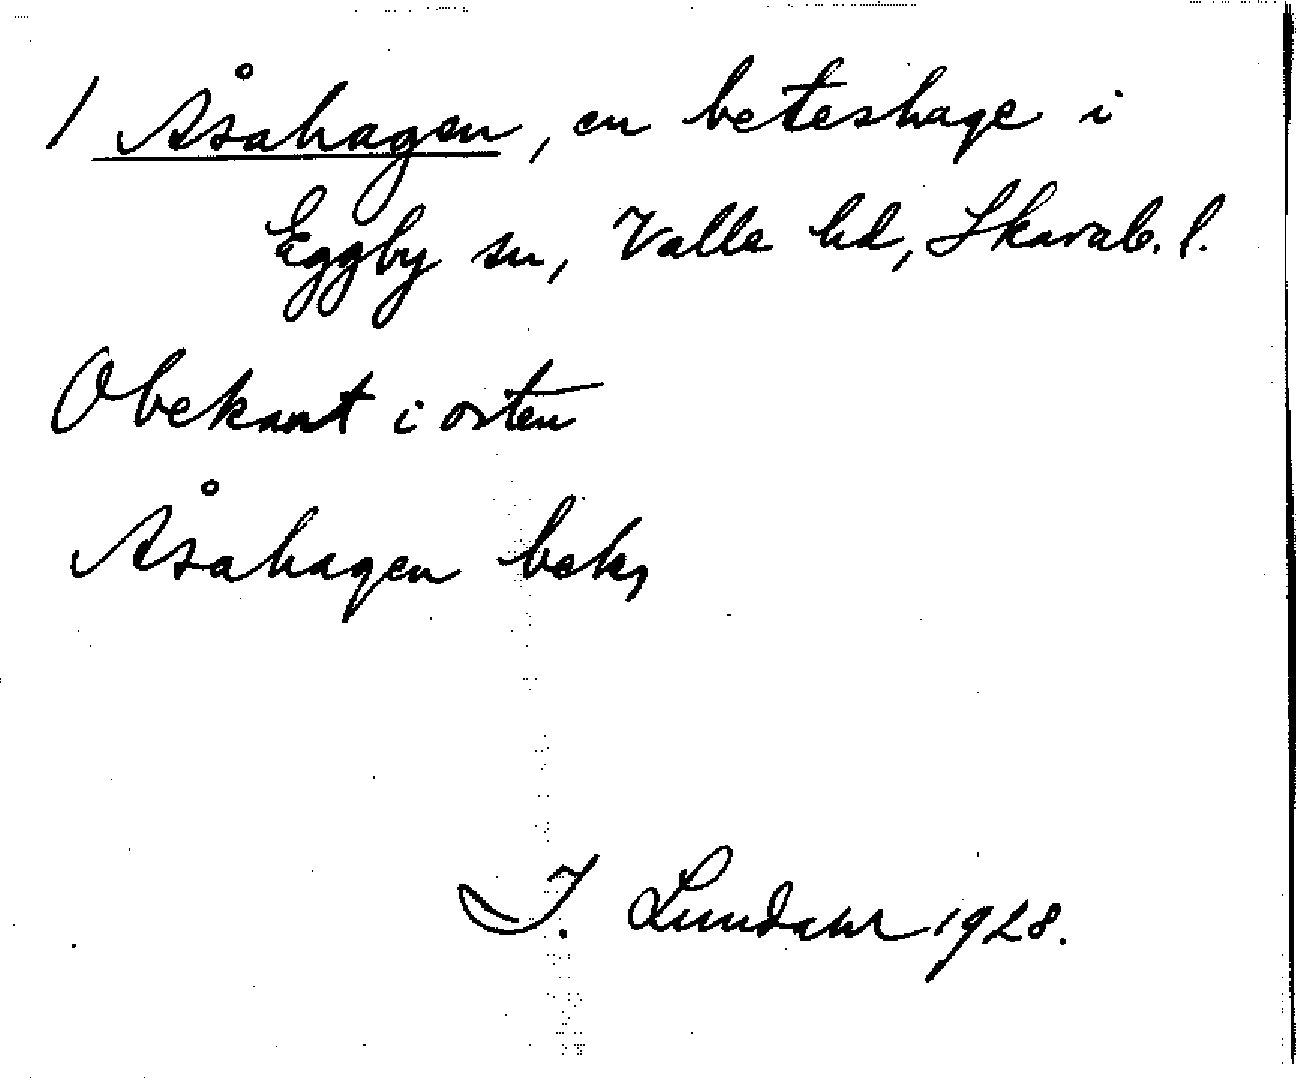 / Åsahagen, en beteshage i
Eggby sn, Valle hd, Skarab. l.
Obekant i orten
Åsahagen
I. Lundahl 1928.